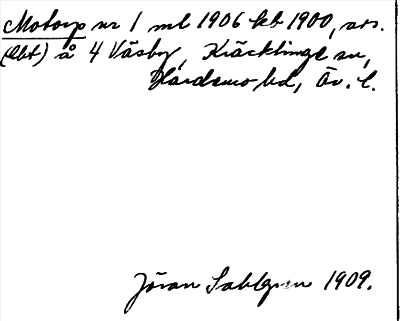 Motorp nr 1 ml 1906 kb 1900, avs.
(ebt) å 4 Väsby, Kräcklinge sn,
Hardemo hd, Ör. l.
Jöran Sahlgren 1909.